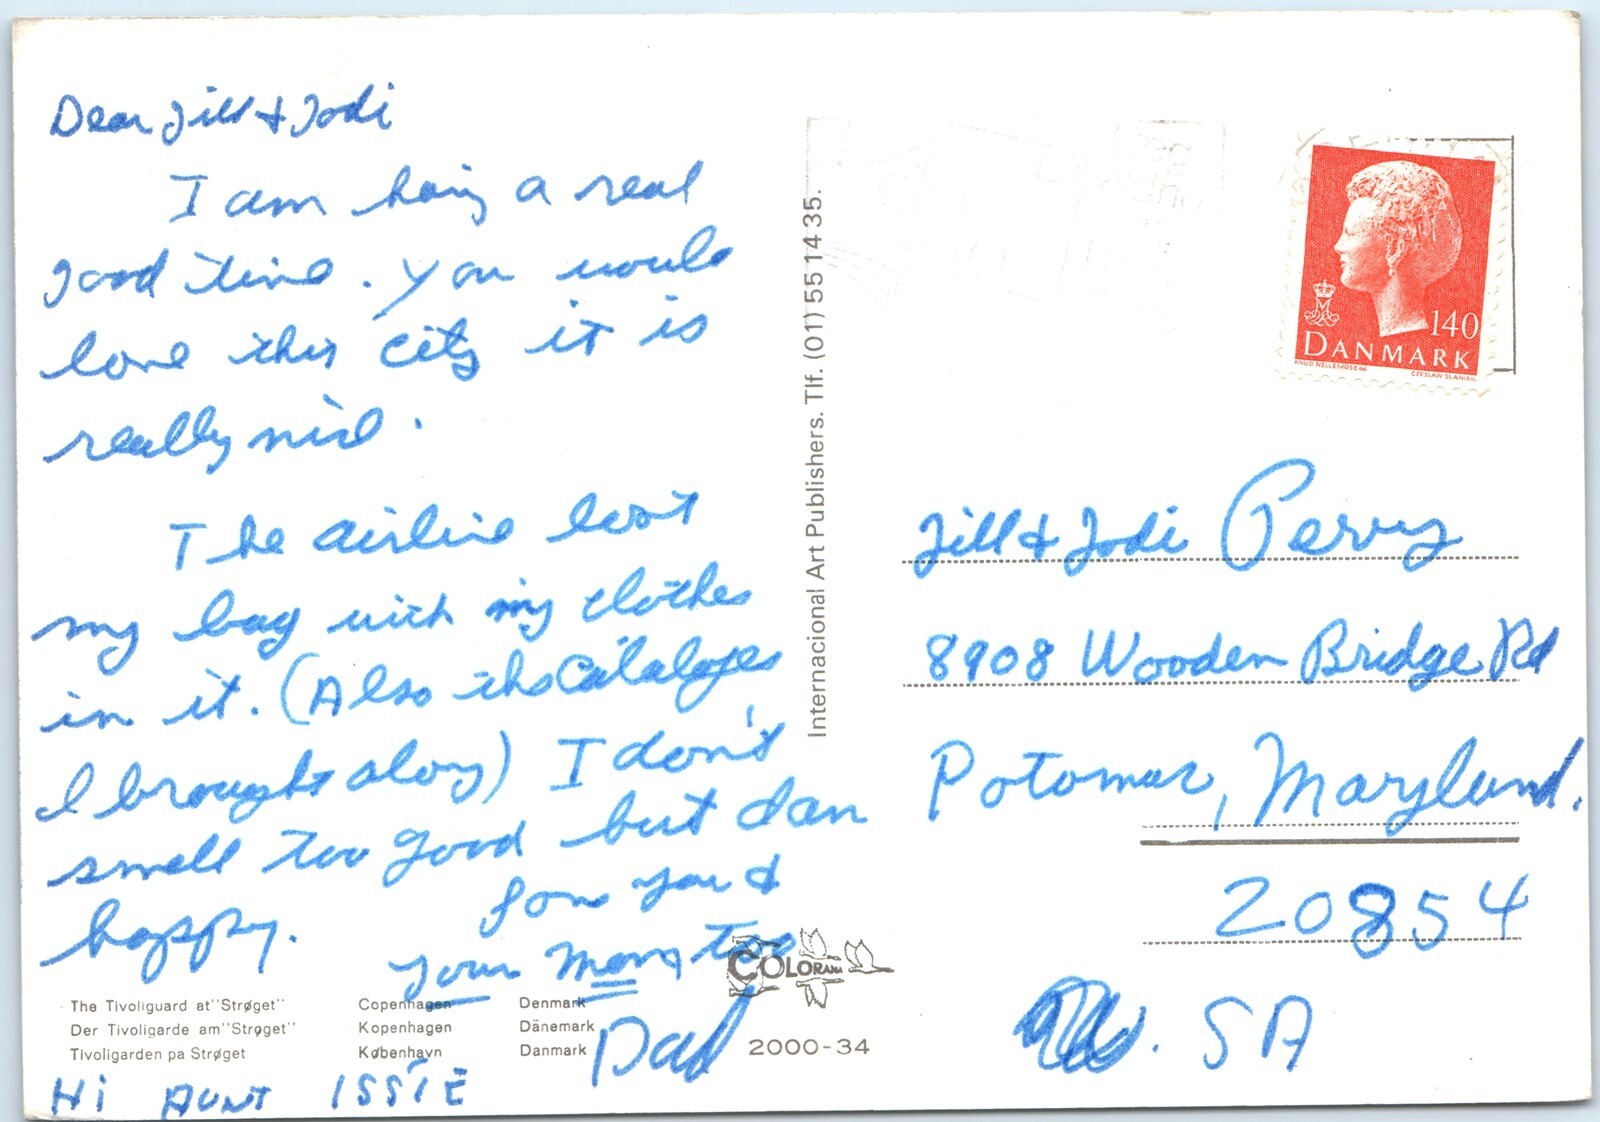 Dear Jill & Jodi
I am having a real
good time. You would
love this city it is
really nice.
The airline lost
my bag with my clothes
in it. (Also the Cataloges
I brought along) I don't
smell too good but
happy.
you &
your Mom too
Dad
HI AUNT ISSIE
The Tivoliguard at "Strøget" Copenhagen Denmark
Der Tivoligarde am "Strøget" Kopenhagen Dänemark
Tivoligarden pa Strøget København Danmark
COLORAMA
2000-34
Internacional Art Publishers. Tlf. (01) 55 14 35.
140
DANMARK
KNUD NELLEMOSE del.
CZESLAW SLANIA sc.
Jill & Jodi Perry
8908 Wooden Bridge Rd
Potomac, Maryland.
20854
SA